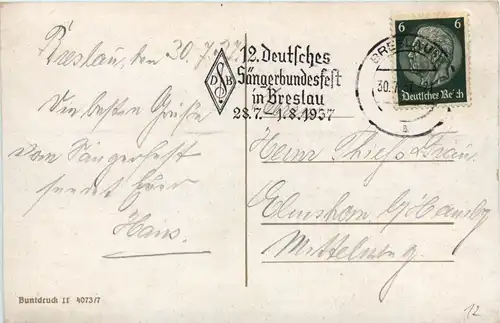 Breslau, den 30.7.37.
Die besten Grüße
vom Sängerfest
sendet Euer
Hans.
12. Deutsches
Sängerbundesfest
in Breslau
28.7.–1.8.1937
D S B
BRESLAU
30.7.
a
6 6
Deutsches Reich
Familie
Heinr. Thieß
Elmshorn b/Hamburg
Mittelweg
Buntdruck II 4073/7
12